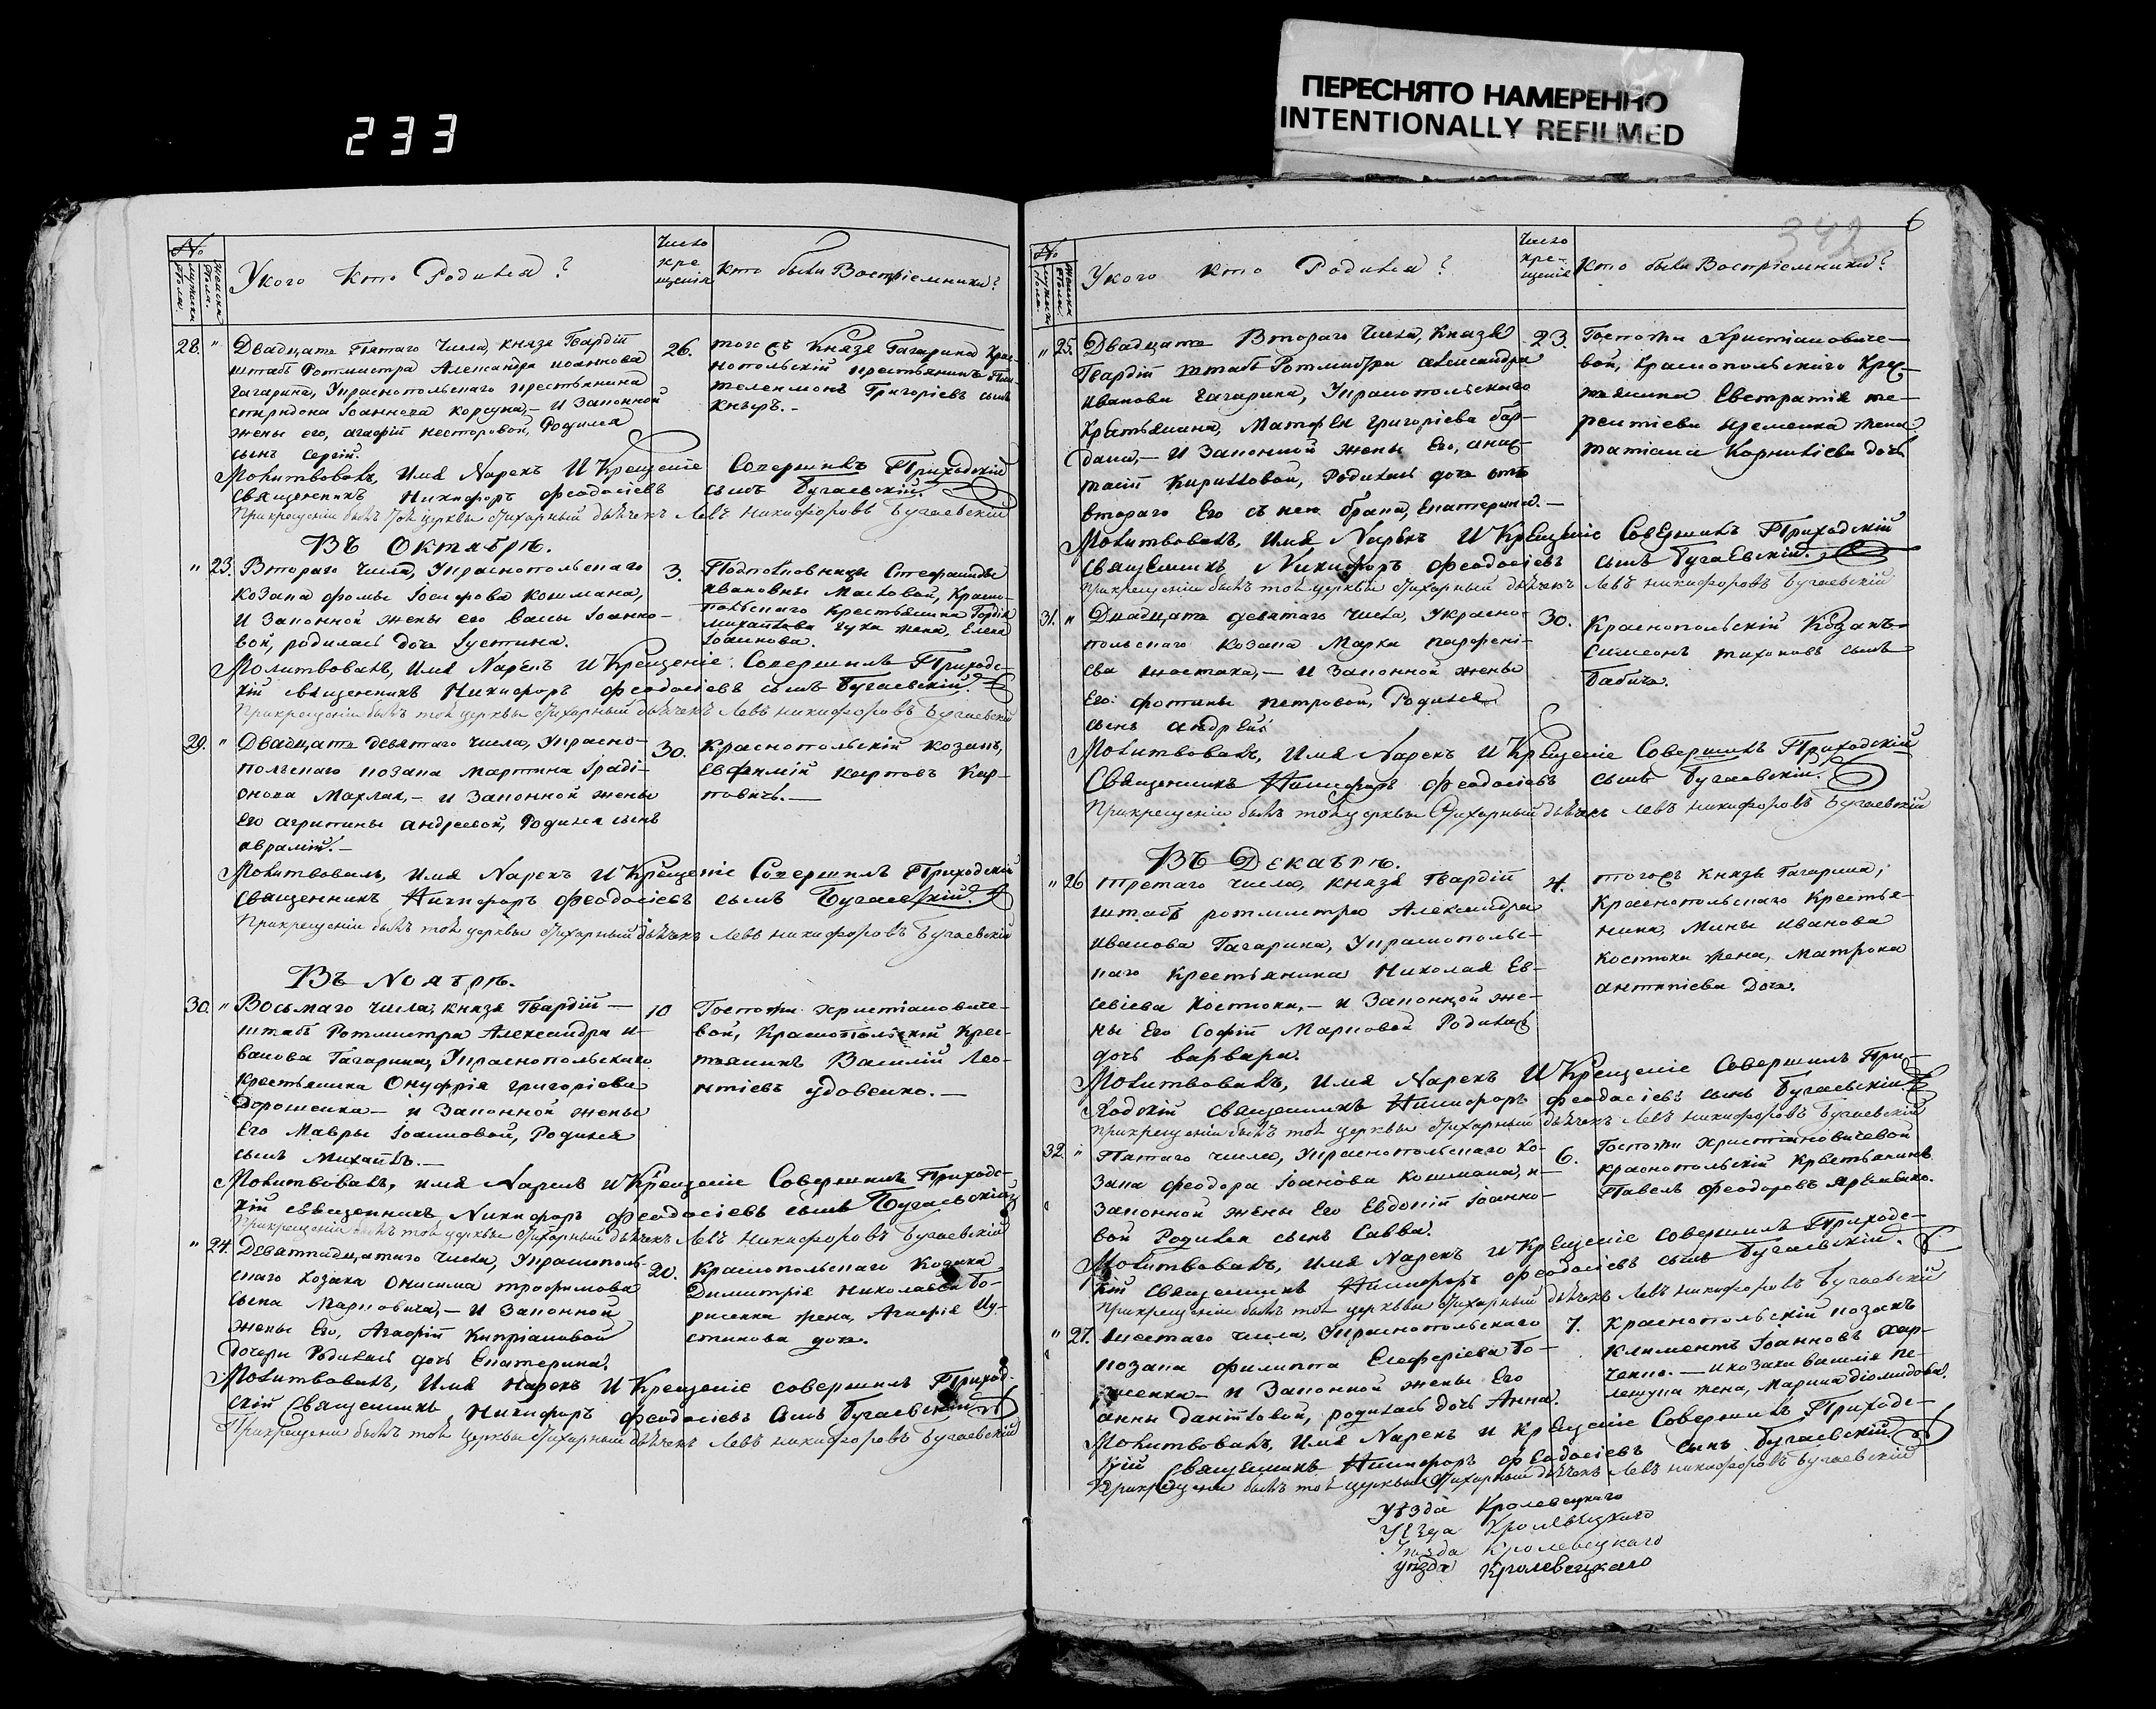 233
ПЕРЕСНЯТО НАМЕРЕННО
INTENTIONALLY REFILMED
№
мужеска пола.
женска пола.
У кого кто Родился?
Число кре щенія
Кто были Воспріемники?
28. " Двадцать Пятаго Числа, князя Гвардіи
штабъ Ротмистра Александра иоаннова
гагарина, Украснопольскаго крестьянина
спиридона Іоаннова коргуна, - И Законной
жены его, агафіи несторовой, Родился
сынъ сергій.
26. того жъ Князя Гагарина Крас-
нопольскій крестьянинъ Пан-
телеимонъ Григоріевъ сынъ
Кныръ. -
Молитвовалъ, Имя Нарекъ И Крещеніе Совершилъ Приходскій
священникъ Никифоръ феодосіевъ сынъ Бугаевскій.
При крещеніи былъ той церквы стихарный дьячекъ Левъ никифоровъ Бугаевскій
Въ Октябрѣ.
" 23. Втораго Числа, Украснопольскаго
козака фомы Іосифова кошмана,
И Законной жены его Вассы Іоанно-
вой, родилась дочь Іустина.
3. Подполковницы Стефаниды
ивановны Масловой, Красно-
польскаго крестьянина Гордія
михайлова чуха жена, Елена
Іоаннова.
Молитвовалъ, Имя Нарекъ И Крещеніе Совершилъ Приходс-
кій священникъ Никифоръ феодосіевъ сынъ Бугаевскій.
При крещеніи былъ той церквы стихарный дьячекъ Левъ никифоровъ Бугаевскій
29. " Двадцать девятаго числа, Украсно-
польскаго козака Мартина Іраді-
онова Махлая, - и Законной жены
Его агрипины андреевой, Родился сынъ
аврамій. -
30. Краснопольскій козакъ,
Евфимій карповъ Кар-
повичъ. -
Молитвовалъ, Имя Нарекъ И Крещеніе Совершилъ Приходскій
священникъ Никифоръ феодосіевъ сынъ Бугаевскій.
При крещеніи былъ той церквы стихарный дьячекъ Левъ никифоровъ Бугаевскій
Въ Ноябрѣ.
30. " Восьмаго числа, князя Гвардіи -
штабъ Ротмистра Александра и-
ванова Гагарина, Украснопольскаго
Крестьянина Онуфрія григоріева
Дорошенка - и Законной жены
Его Мавры Іоанновой, Родился
сынъ Михаилъ. -
10 Госпожи христіановиче-
вой, Краснопольскій Крес-
тьянинъ Василій Лео-
нтіевъ удовенко. -
Молитвовалъ, имя Нарекъ И Крещеніе Совершилъ Приходс-
кій священникъ Никифоръ феодосіевъ сынъ Бугаевскій
При крещеніи былъ той церквы стихарный дьячекъ Левъ никифоровъ Бугаевскій
" 24. Девятнадцатаго Числа, Украснополь-
скаго козака Онисима трофимова
сына Марковича, - И Законной
жены Его, Агафіи Кипріановой
дочери Родилась дочь Екатерина.
20. Краснопольскаго Козака
Димитрія Николаева Бо-
рисенка жена, Агафія Иу-
стинова дочь.
Молитвовалъ, Имя Нарекъ И Крещеніе совершилъ Приход-
скій Священникъ Никифоръ феодосіевъ Сынъ Бугаевскій
При крещеніи былъ той церквы стихарный дьячекъ Левъ никифоровъ Бугаевскій
6
342
№
мужеска пола.
женска пола.
У кого кто Родился?
Число кре- щенія
Кто были Воспріемники?
" 25. Двадцать Втораго Числа, Князя
Гвардіи Штабъ Ротмистра александра
Иванова Гагарина, Украснопольскаго
Крестьянина, Матфея григоріева бар-
дака, - И Законной жены Его, анас-
тасіи Кириловой, Родилась дочь отъ
втораго Его съ нею брака, Екатерина. -
23. Госпожи Христіановиче-
вой, Краснопольскаго Крес-
тьянина Евстратія те-
рентіева яременка жена
татіана Корниліева дочь
Молитвовалъ, Имя Нарекъ И Крещеніе Совершилъ Приходскій
священникъ Никифоръ феодосіевъ сынъ Бугаевскій.
При крещеніи былъ той церквы стихарный дьячекъ Левъ никифоровъ Бугаевскій
31. " Двадцать девятаго числа, Украсно-
польскаго козака Марка парфені-
ева шостака, - И Законной жены
Его: фотины петровой, Родился
сынъ андрей.
30. Краснопольскій Козакъ
Симеонъ тихоновъ сынъ
Бабичъ.
Молитвовалъ, Имя Нарекъ И Крещеніе Совершилъ Приходскій
Священникъ Никифоръ феодосіевъ сынъ Бугаевскій.
При крещеніи былъ той церквы Стихарный дьячекъ Левъ никифоровъ Бугаевскій
Въ Декабрѣ.
" 26 третаго числа, князя Гвардіи
штабъ ротмистра Александра
Иванова Гагарина, Украснополь-
каго Крестьянина Николая Ев-
севіева Костюка, - и Законной же-
ны Его Софіи Марковой Родилась
дочь варвара.
4. того жъ Князя Гагарина;
Краснопольскаго Крестья-
нина, Мины Иванова
Костюка жена, Матрона
антипіева Дочь.
Молитвовалъ, Имя Нарекъ И Крещеніе Совершилъ При-
ходскій священникъ Никифоръ феодосіевъ сынъ Бугаевскій
При крещеніи былъ той церквы стихарный дьячекъ Левъ никифоровъ Бугаевскій
32. " Пятаго числа, Украснопольскаго ко-
зака феодора Іоанова Кошмана, и
Законной жены Его Евдокіи Іоанно-
вой Родился сынъ Савва.
6. Госпожи Христіановичевой
краснопольскій Крестьянинъ
Павелъ феодоровъ яременко.
Молитвовалъ, Имя Нарекъ И Крещеніе Совершилъ Приходс-
кій Священникъ Никифоръ феодосіевъ сынъ Бугаевскій.
При крещеніи былъ той церквы стихарный дьячекъ Левъ никифоровъ Бугаевскій
" 27. шестаго числа, Украснопольскаго
козака филиппа Елеферіева Бо-
женка - и Законной жены Его
анны даниловой, родилась дочь Анна.
7. Краснопольскій козакъ
Климентъ Іоанновъ Хар-
ченко. - и козака василія пе-
лешука жена, Марина діомидова.
Молитвовалъ, Имя Нарекъ и Крещеніе Совершилъ Приходс-
кій Священникъ Никифоръ феодосіевъ Сынъ Бугаевскій
При крещеніи былъ той церквы стихарный дьячекъ Левъ никифоровъ Бугаевскій
Уѣзда Кролевецкаго
Уѣзда Кролевецкаго
Уѣзда Кролевецкаго
уѣзда Кролевецкаго